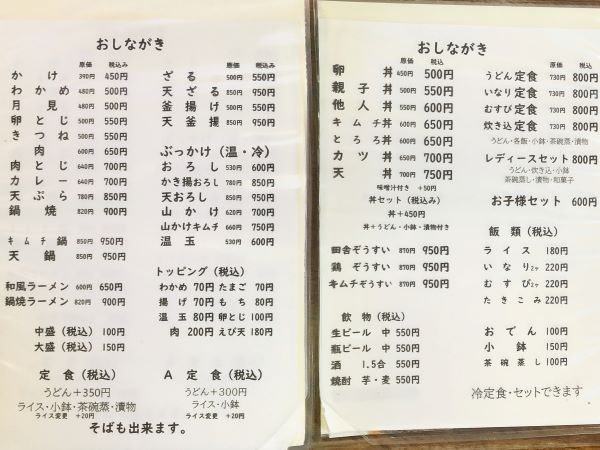 おしながき
原価 税込み
かけ 390円 450円
わかめ 480円 500円
月見 480円 500円
卵とじ 500円 550円
きつね 500円 550円
肉 600円 650円
肉とじ 640円 700円
カレー 640円 700円
天ぷら 780円 850円
鍋焼 820円 900円
キムチ鍋 850円 950円
天鍋 850円 950円
和風ラーメン 600円 650円
鍋焼ラーメン 820円 900円
中盛(税込) 100円
大盛(税込) 150円
定食(税込)
うどん+350円
ライス・小鉢・茶碗蒸・漬物
ライス変更 +20円
原価 税込み
ざる 500円 550円
天ざる 850円 950円
釜揚げ 500円 550円
天釜揚 850円 950円
ぶっかけ(温・冷)
おろし 530円 600円
かき揚おろし 780円 850円
天おろし 850円 950円
山かけ 620円 700円
山かけキムチ 660円 750円
温玉 530円 600円
トッピング(税込)
わかめ 70円 たまご 70円
揚げ 70円 もち 80円
温玉 80円 卵とじ 100円
肉 200円 えび天 180円
A定食(税込)
うどん+300円
ライス・小鉢
ライス変更 +20円
そばも出来ます。
おしながき
原価 税込
卵丼 450円 500円
親子丼 500円 550円
他人丼 550円 600円
キムチ丼 550円 600円
とろろ丼 550円 600円
カツ丼 650円 700円
天丼 670円 750円
味噌汁付き +50円
丼セット(税込み)
丼+450円
丼+うどん・小鉢・漬物付き
田舎ぞうすい 870円 950円
鶏ぞうすい 870円 950円
キムチぞうすい 870円 950円
飲物(税込)
生ビール 中 550円
瓶ビール 中 550円
酒 1.5合 550円
焼酎 芋・麦 550円
原価 税込
うどん定食 730円 800円
いなり定食 730円 800円
むすび定食 730円 800円
炊き込定食 730円 800円
うどん・各飯・小鉢・茶碗蒸・漬物
レディースセット 800円
うどん・炊き込・小鉢
茶碗蒸し・漬物・和菓子
お子様セット 600円
飯類(税込)
ライス 180円
いなり2ヶ 220円
むすび2ヶ 220円
たきこみ 220円
おでん 100円
小鉢 150円
茶碗蒸し 100円
冷定食・セットできます